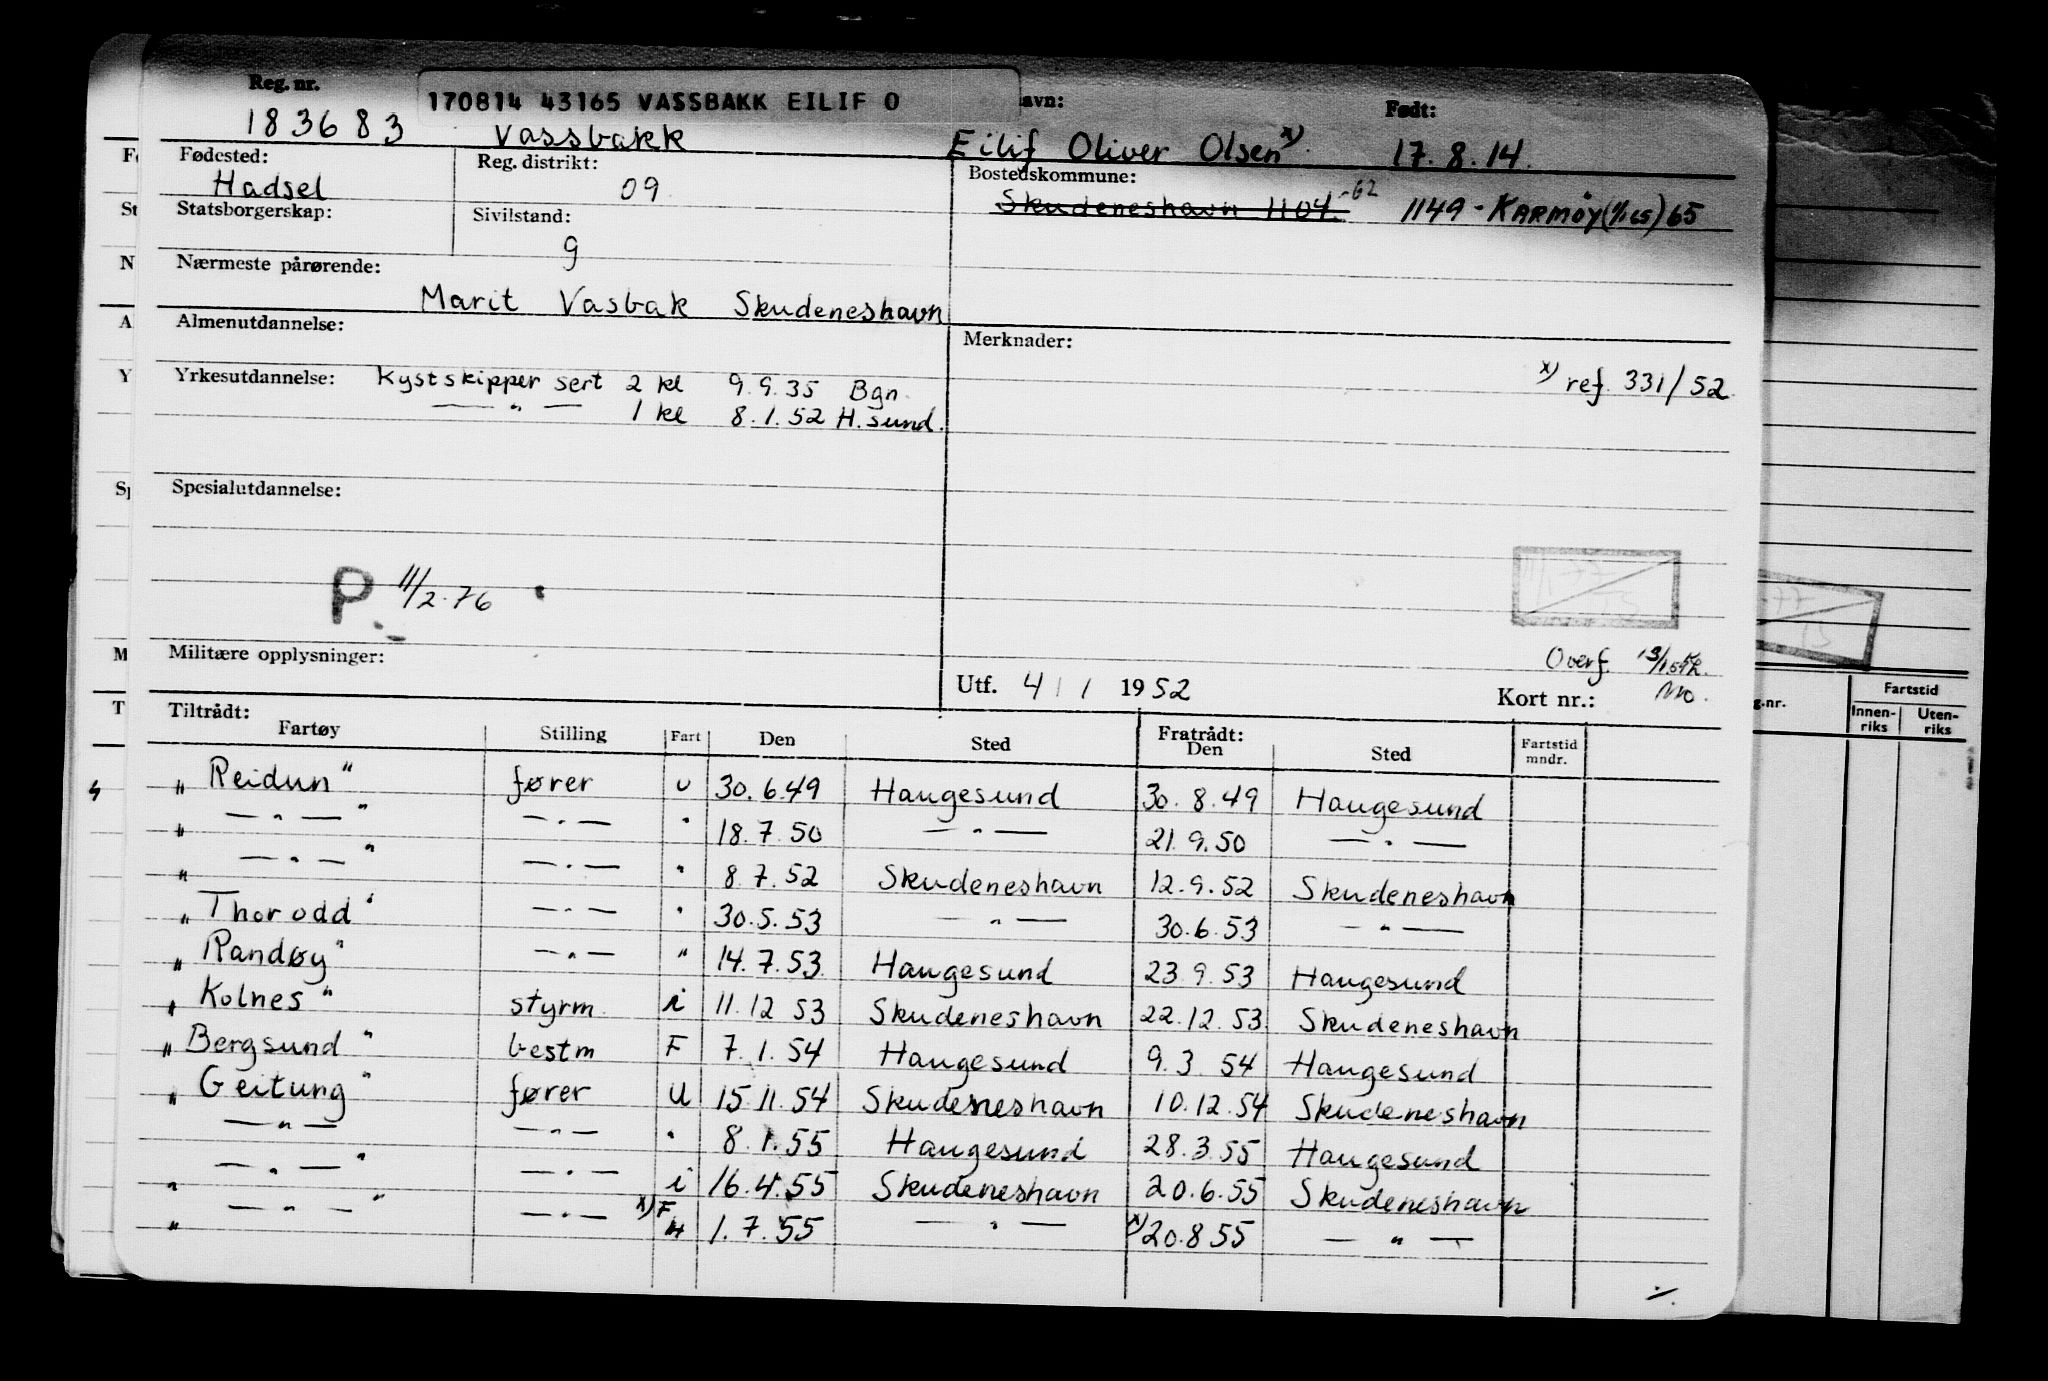 Reg. nr. 170814 43165 VASSBAKK EILIF O avn: Født:
183683 Vassbakk Eilif Oliver Olsen x) 17.8.14.
Fødested: Reg. distrikt: Bostedskommune:
Hadsel 09 Skudeneshavn 1104 -62 1149 - KARMØY (1/1 65) 65
Statsborgerskap: Sivilstand:
g
Nærmeste pårørende:
Marit Vasbak Skudeneshavn
Almenutdannelse: Merknader:
Yrkesutdannelse: Kystskipper sert 2 kl 9.9.35 Bgn. x) ref. 331/52
— " — 1 kl 8.1.52 H.sund.
Spesialutdannelse:
P 11/2.76
Militære opplysninger: Overf.
Utf. 4/1 1952 Kort nr.:
Tiltrådt: Fratrådt:
Fartøy Stilling Fart Den Sted Den Sted Fartstid mndr.
" Reidun " fører U 30.6.49 Haugesund 30.8.49 Haugesund
" — " — " — " — " 18.7.50 — " — 21.9.50 — " —
" — " — " — " — " 8.7.52 Skudeneshavn 12.9.52 Skudeneshavn
" Thorodd " — " — " 30.5.53 — " — 30.6.53 — " —
" Randøy " — " — " 14.7.53 Haugesund 23.9.53 Haugesund
" Kolnes " styrm. i 11.12 53 Skudeneshavn 22.12.53 Skudeneshavn
" Bergsund " bestm F 7.1.54 Haugesund 9.3 54 Haugesund
" Geitung " fører U 15.11.54 Skudeneshavn 10.12.54 Skudeneshavn
— " — — " — " 8.1.55 Haugesund 28.3.55 Haugesund
" — " — " — " — i 16.4.55 Skudeneshavn 20.6.55 Skudeneshavn
" — " — " — " — x) F 1.7.55 — " — x) 20.8 55 — " —
g.nr. Fartstid
Innen-riks Uten-riks